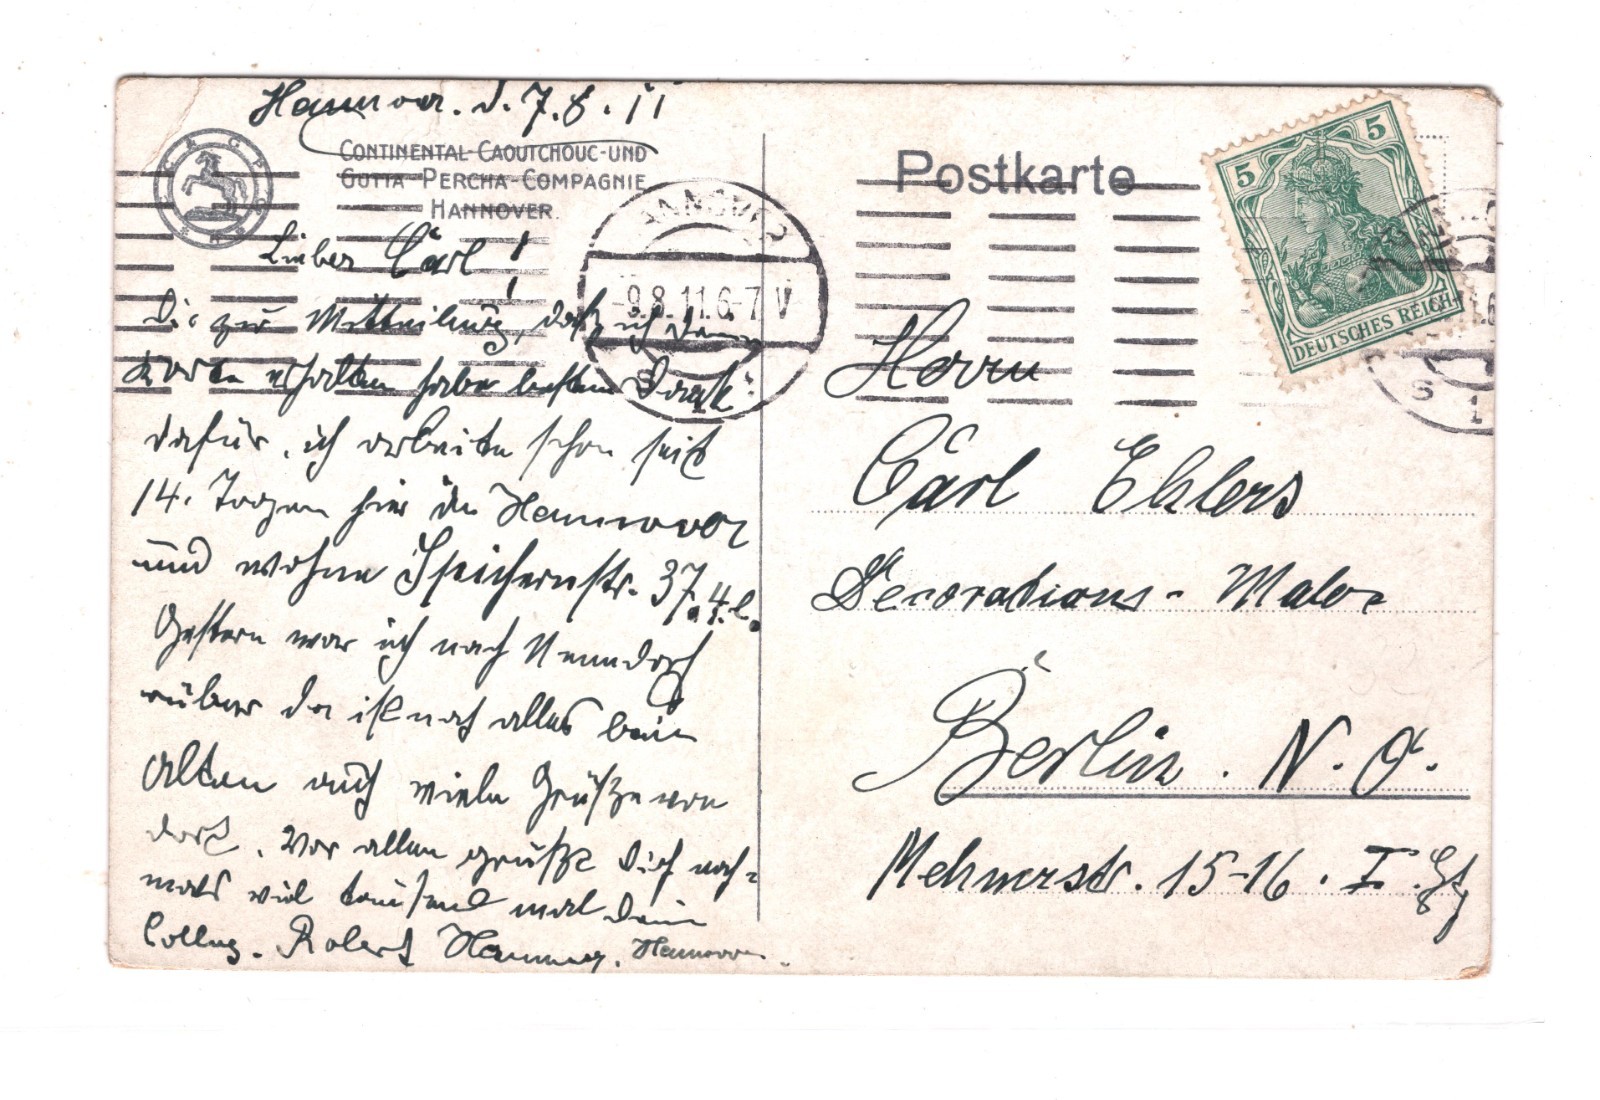 Hannover. d. 7.8.11
CONTINENTAL-CAOUTCHOUC-UND
GUTTA-PERCHA-COMPAGNIE
HANNOVER.
Lieber Carl!
Dir zur Mitteilung, daß ich deine
Karte erhalten habe besten Dank
dafür, ich arbeite schon seit
14. Tagen hier in Hannover
und wohne Speichernstr. 37. 4. e.
Gestern war ich nach Nenndorf
rüber da ist noch alles beim
Alten auch viele Grüße von
dort. Vor allem grüßt Dich noch-
mals viel tausend mal dein
Colleg. Robert Hannover.
Postkarte
5 5
DEUTSCHES REICH
HANNOVER
-9.8.11.6-7 V
S 1
Herrn
Carl Ehlers
Decorations-Maler
Berlin. N.O.
Mehnerstr. 15-16. I.
S 1